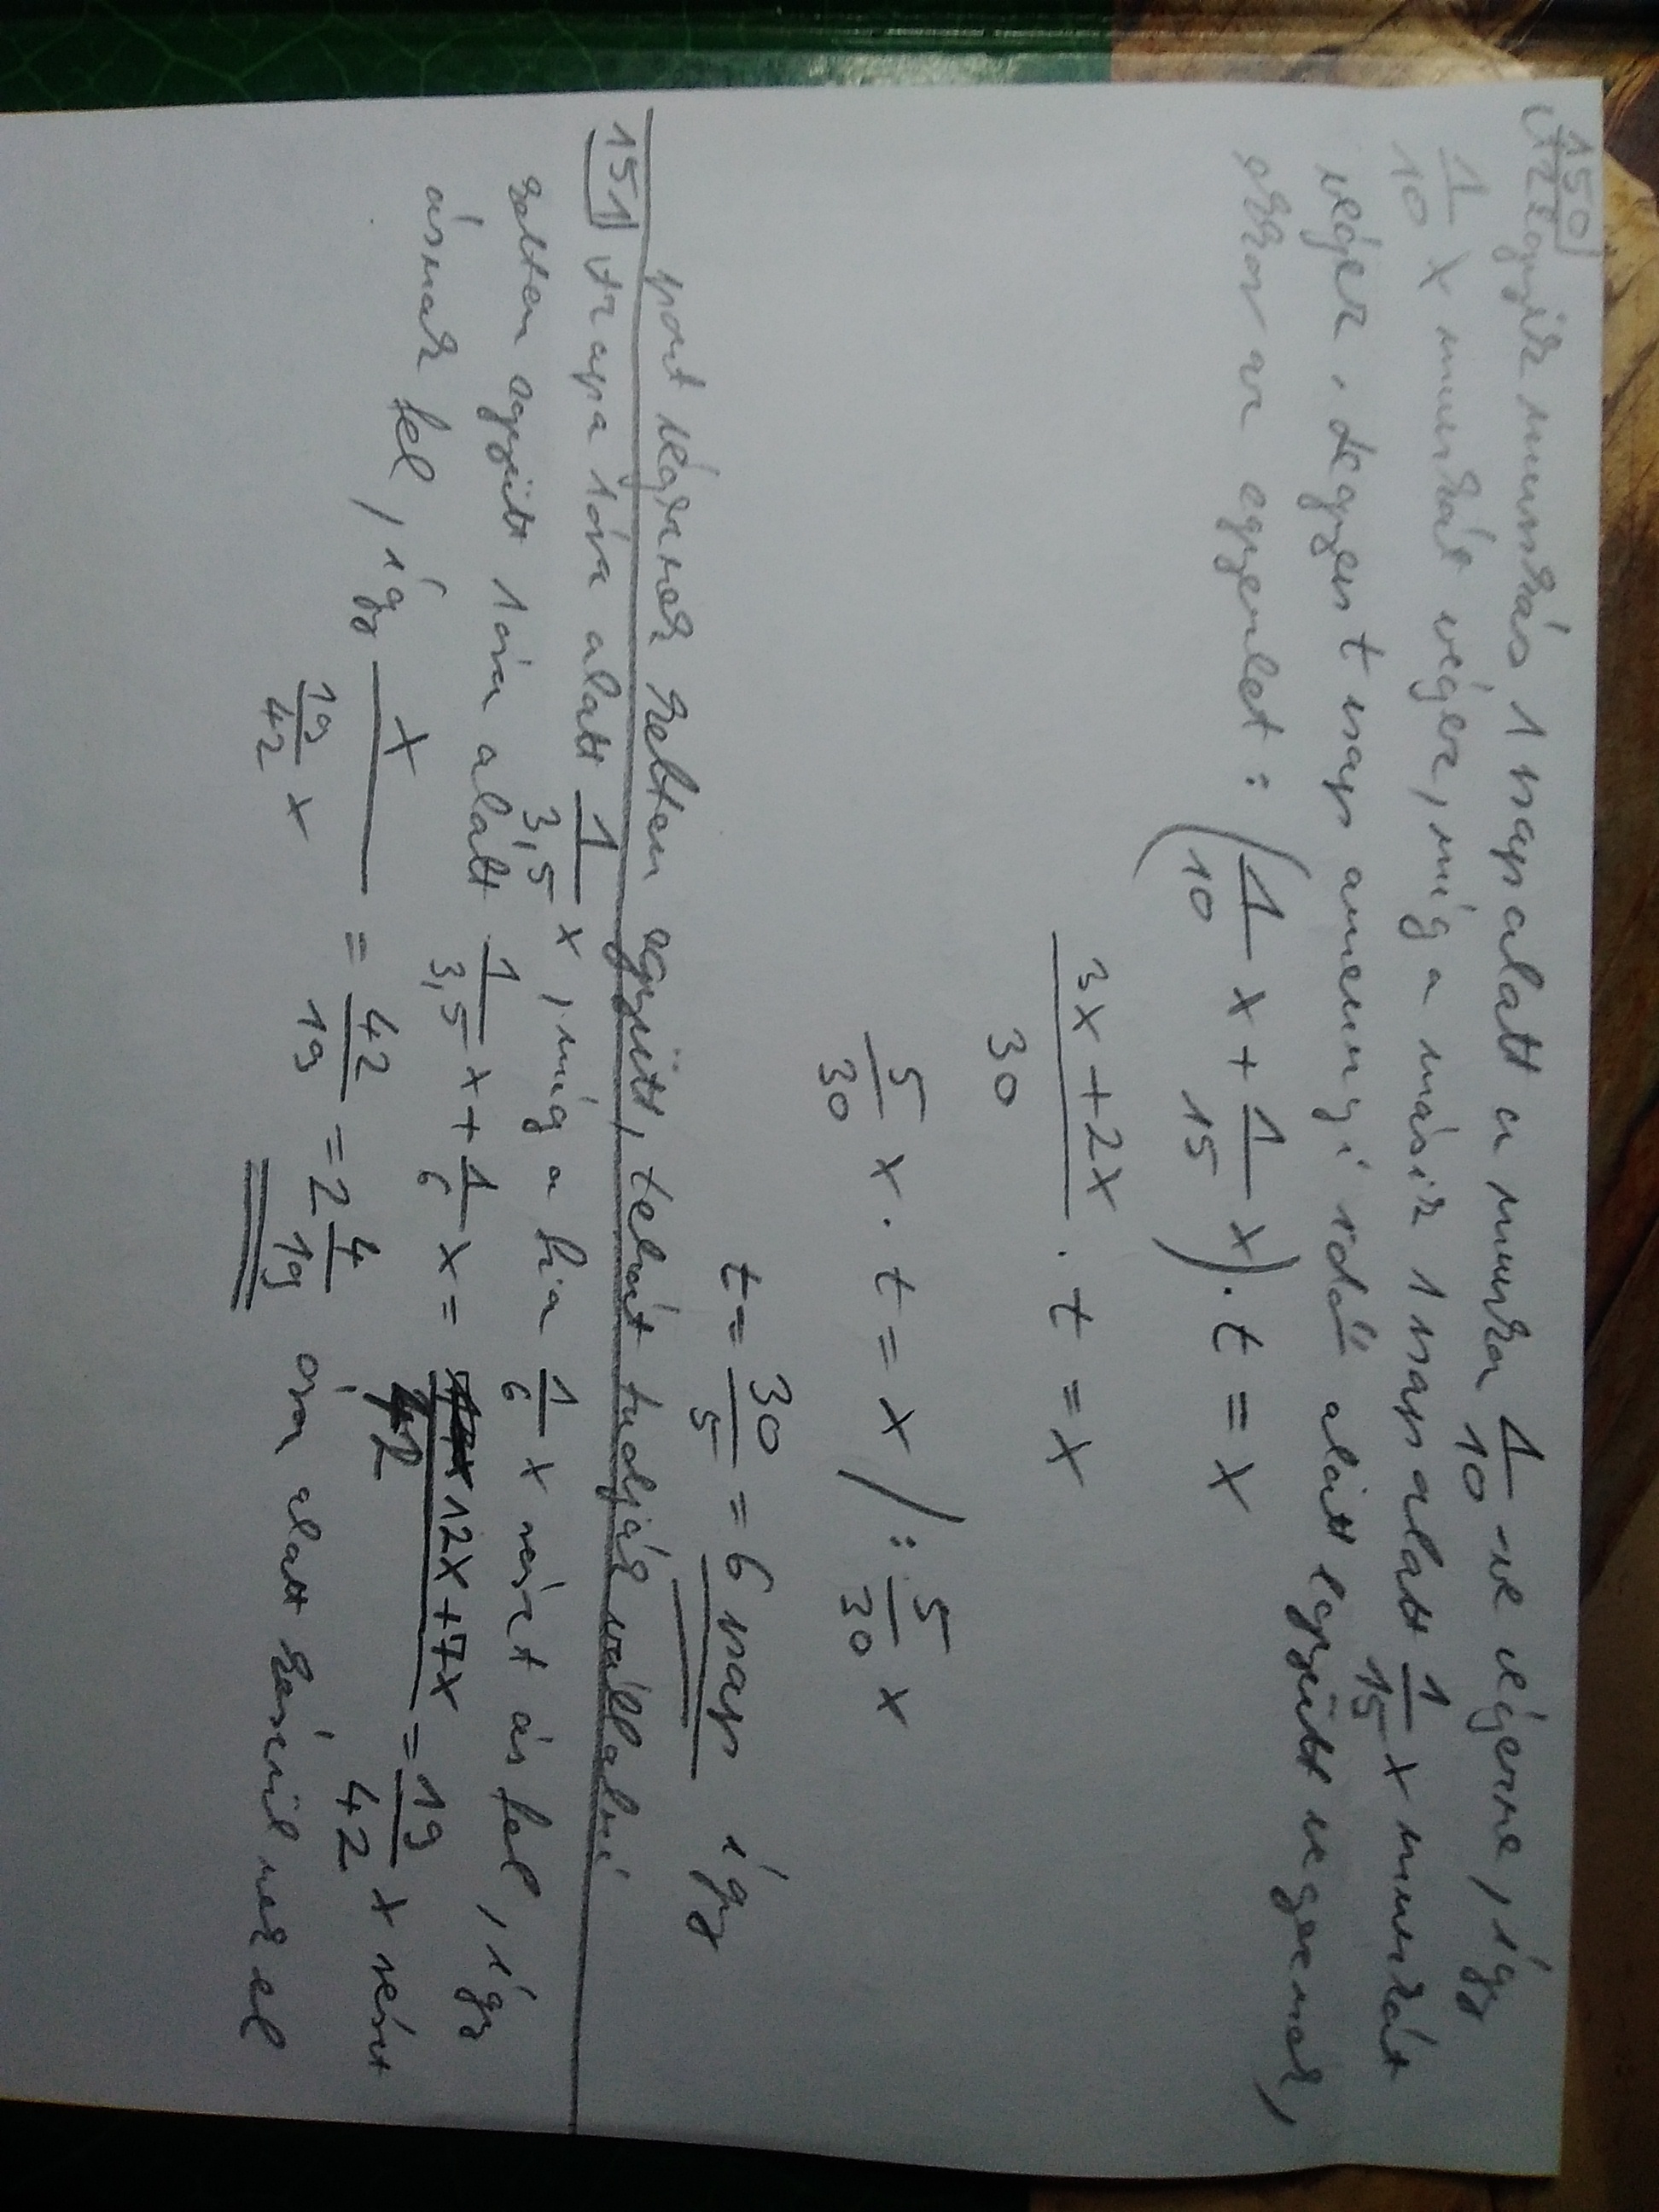 150
Az egyik munkás 1 nap alatt a munka 1/10-ve végezne, így
1/10 x munkát végez, míg a másik 1 nap alatt 1/15 x munkát
végez. Legyen t nap amennyi idő alatt együtt végeznek,
ekkor az egyenlet: (1/10 x + 1/15 x) · t = x
3x + 2x / 30 · t = x
5/30 x · t = x /: 5/30 x
t = 30/5 = 6 nap így
pont végeznek ketten együtt, tehát tudják vállalni
151 Az apa 1 óra alatt 1/3,5 x, míg a fia 1/6 x részt ás fel, így
ketten együtt 1 óra alatt 1/3,5 x + 1/6 x = 12x + 7x / 42 = 19/42 x részt
ásnak fel, így x / 19/42 x = 42/19 = 2 4/19 óra alatt készülnek el